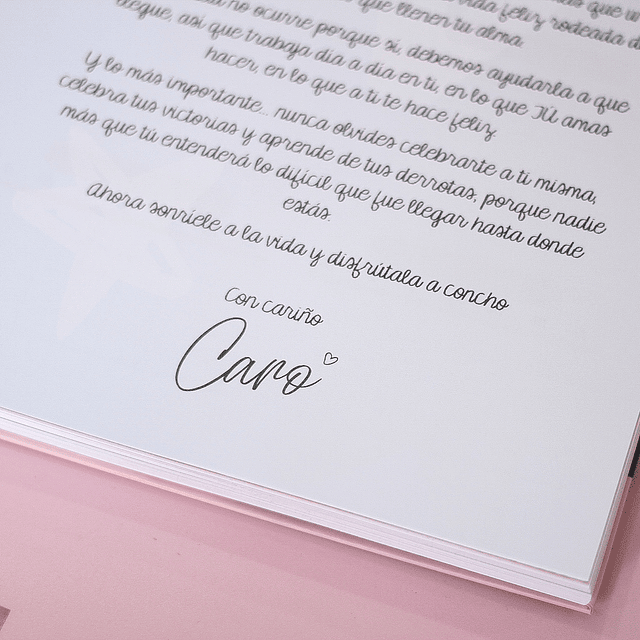 vida feliz rodeada d
que llenen tu alma.
no ocurre porque sí, debemos ayudarla a que
llegue, así que trabaja día a día en ti, en lo que TÚ amas
hacer, en lo que a ti te hace feliz.
Y lo más importante... nunca olvides celebrarte a ti misma,
celebra tus victorias y aprende de tus derrotas, porque nadie
más que tú entenderá lo difícil que fue llegar hasta donde
estás.
Ahora sonríele a la vida y disfrútala a concho
Con cariño
Caro